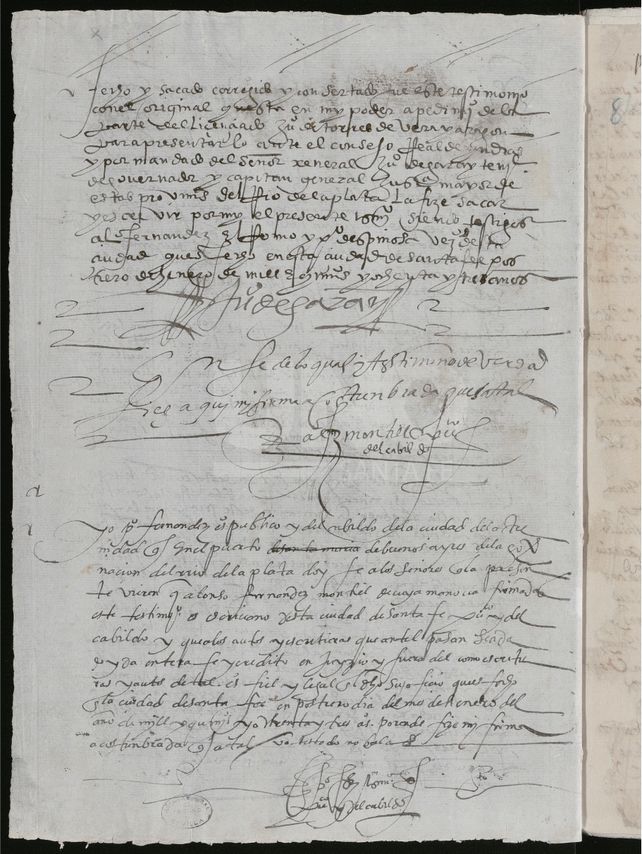 fecho y sacado corregido y concertado fue este testimonio
con el original questa en my poder a pedimiº de la
parte del licenciado juº de torres de vera y aragon
para presentar lo ante el consejo Real de yndias
y por mandado del señor xeneral Juº de garay teni
de governador y capitan general justª mayor de
estas provinçias del Rio de la plata La fize sacar
y escrevir por my el presente
al fernandez Romo y pº despinosa vezºs desta
ciudad ques fecho en esta ciudad de santa fee pos
trero de henero de mill e qs y ochenta y tres años
Juº de garay
En fe de lo qual y testimonio de verdad
fize aqui mi firma acostunbrada ques a tal
alº fernz montiel
del cabildo
yo pº fernandez esº publico y del cabildo de la ciudad de la tri
nidad ques en el puerto de santa maria de buenos ayres de la gover
nacion del rio de la plata doy fe a los señores que la presen
te vieren que alonso fernandez montiel de cuya mano va firmado
este testimº es escrivano desta ciudad de santa fe puº y del
cabildo y que a los autos y escrituras que ante el pasan se a da
do y da entera fe y credito en juyzio y fuera del como escritu
ras y autos de tal esº fiel y legal
la ciudad de santa fee en postrero dia del mes de henero del
año de mill y quinisº y ochenta y tres aºs por ende fize mi firma
acostunbrada ques a tal va testado no bala
pº fernz
puº y del cabildo